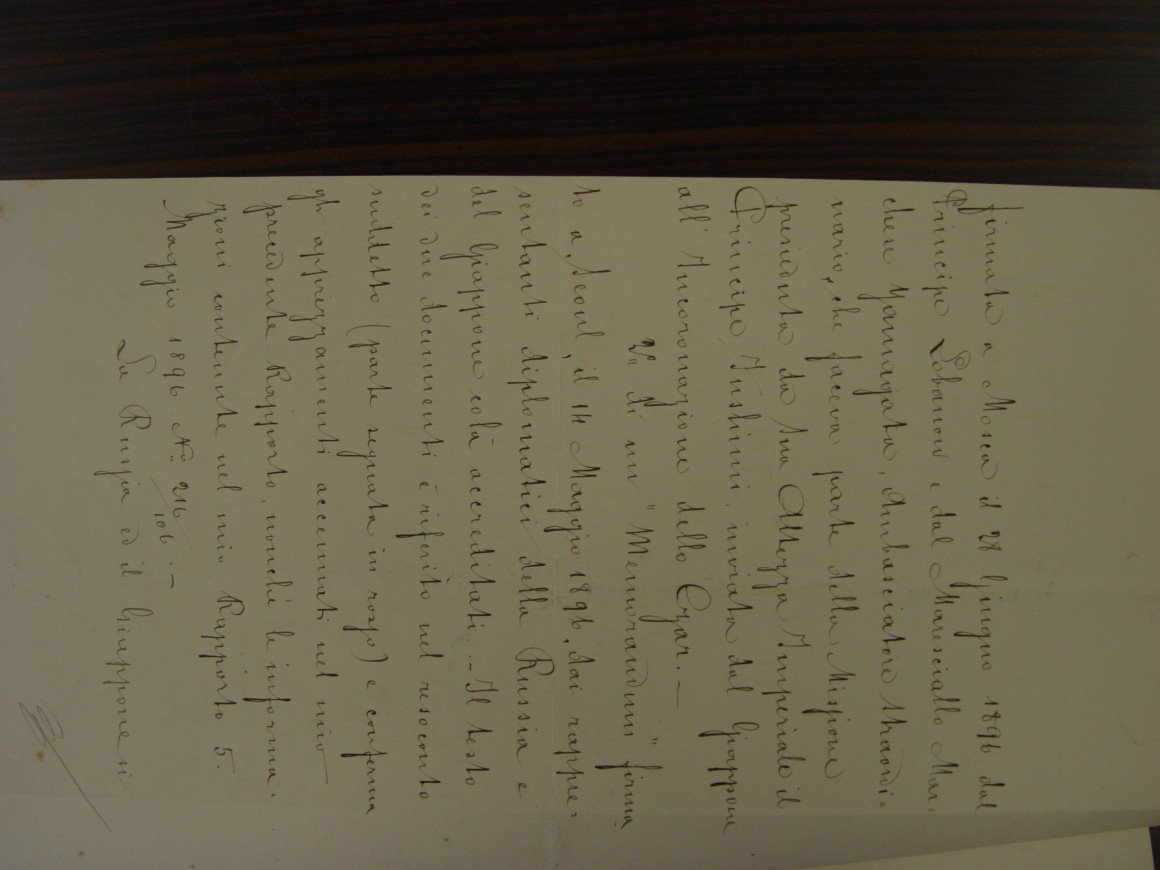 firmata a Mosca il 28 Giugno 1896 dal
Principe Lobanow e dal Maresciallo Mar=
chese Yamagata, Ambasciatore straordi=
nario, che faceva parte della Missione
presieduta da Sua Altezza Imperiale il
Principe Fushimi, inviata dal Giappone
all'Incoronazione dello Czar. —
2º. di un "Memorandum" firma=
to a Seoul, il 14 Maggio 1896, dai rappre=
sentanti diplomatici della Russia e
del Giappone colà accreditati. — Il testo
dei due documenti è riferito nel resoconto
suddetto (parte segnata in rosso) e conferma
gli apprezzamenti accennati nel mio
precedente Rapporto, nonchè le informa=
zioni contenute nel mio Rapporto 5.
Maggio 1896 Nº. 216/106. —
La Russia ed il Giappone si